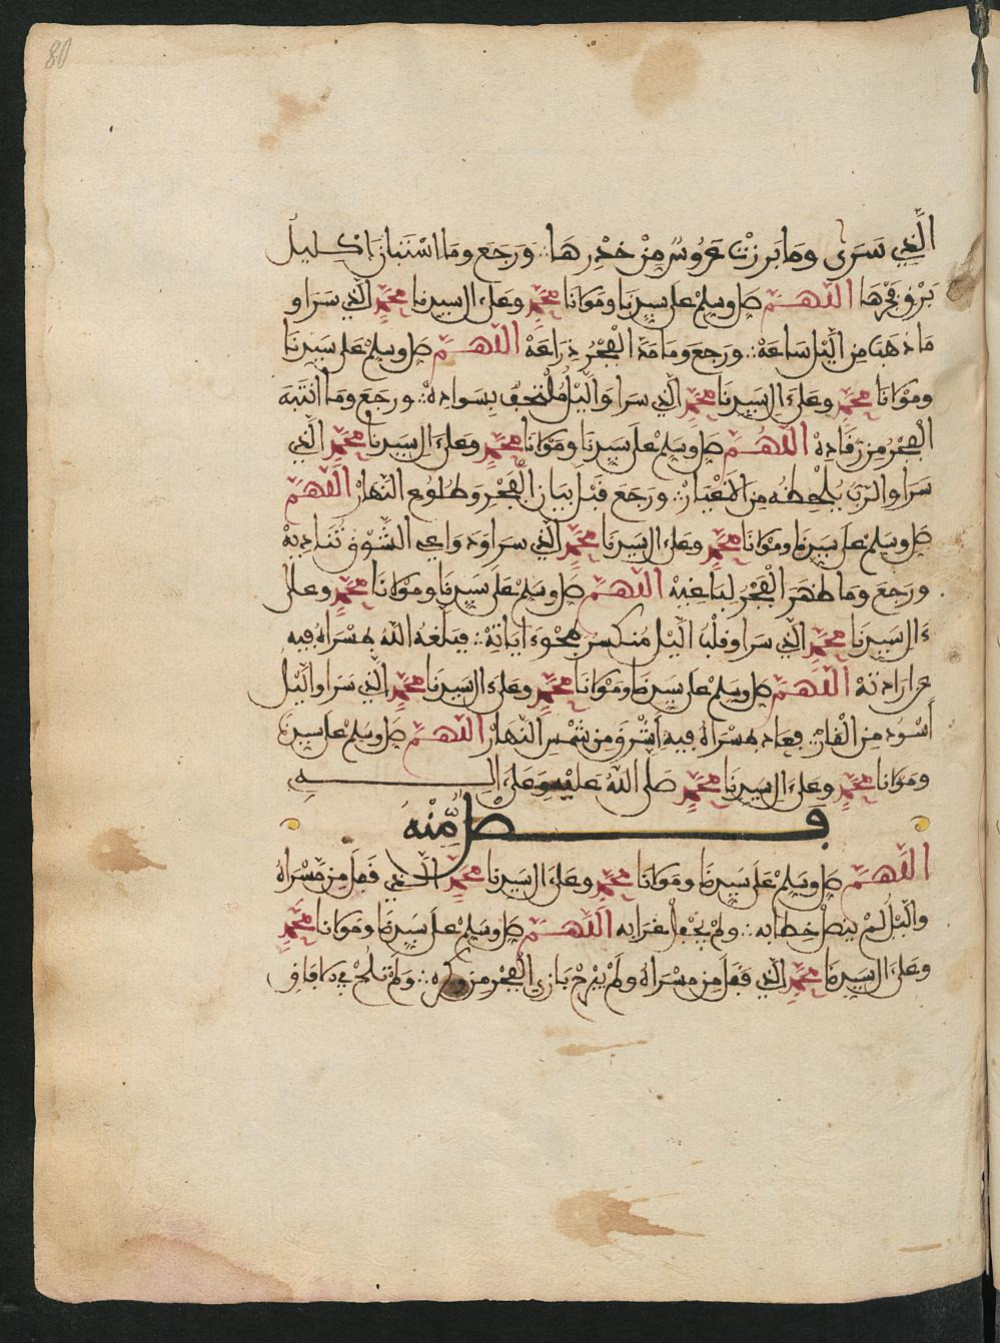 80
الَّذِي سَرَى وما برزت عَرُوسٌ مِنْ خدْرِهَا ورَجَع ومَا اسْتَبَانَ اكليل
اللهم صل وسلم على سيدنا ومولانا محمد وعلى ءال سيدنا محمد الذي سرا و
ما ذهب من اليل ساعة ورجع وما مد الفجر ذراعه اللهم صل وسلم على سيدنا
ومولانا محمد وعلى ءال سيدنا محمد الذي سرا واليل ملتحف بسواده ورجع وما انتبه
الفجر من رقاده اللهم صل وسلم على سيدنا ومولانا محمد وعلى ءال سيدنا محمد الذي
سرا والرب يلحظه من الاغيار ورجع قبل بيان الفجر وطلوع النهار اللهم
صل وسلم على سيدنا ومولانا محمد وعلى ءال سيدنا محمد الذي سرا ودواعي الشوق تناديه
ورجع وما ظهر الفجر لباغيه اللهم صل وسلم على سيدنا ومولانا محمد وعلى
ءال سيدنا محمد الذي سرا وقلب اليل منكسر بمحو ءاياته فبلغه الله بمسراه فيه
اللهم صل وسلم على سيدنا ومولانا محمد وعلى ءال سيدنا محمد الذي سرا واليل
أسود من القار فعاد بمسراه فيه أشرق من شمس النهار اللهم صل وسلم على سيدنا
ومولانا محمد وعلى ءال سيدنا محمد صلى الله عليه وعلى ءاله
فصل منه
اللهم صل وسلم على سيدنا ومولانا محمد وعلى ءال سيدنا محمد الذي قفل من مسراه
واليل لم ينصل خطابه ولم يخف غرابه اللهم صل وسلم على سيدنا ومولانا محمد
وعلى ءال سيدنا محمد الذي قفل من مسراه ولم يبرح بازي الفجر من وكره ولم تلح